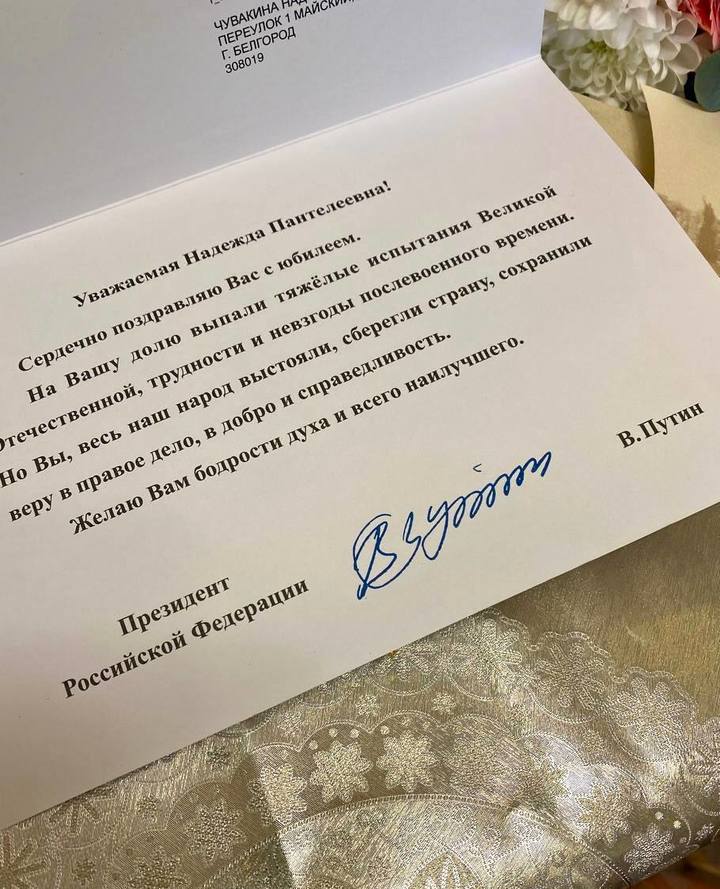 ЧУВАКИНА
ПЕРЕУЛОК 1 МАЙСКИЙ,
Г. БЕЛГОРОД
308019
Уважаемая Надежда Пантелеевна!
Сердечно поздравляю Вас с юбилеем.
На Вашу долю выпали тяжёлые испытания Великой
Отечественной, трудности и невзгоды послевоенного времени.
Но Вы, весь наш народ выстояли, сберегли страну, сохранили
веру в правое дело, в добро и справедливость.
Желаю Вам бодрости духа и всего наилучшего.
В.Путин
Президент
Российской Федерации